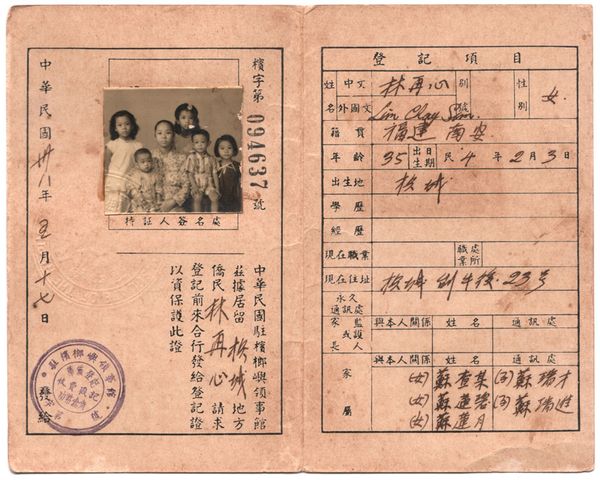 檳字第 094637 號
持証人簽名處
中華民國駐檳榔嶼領事館
茲據居留 檳城 地方
僑民 林再心 請求
登記前來合行發給登記證
以資保護此證
中華民國 卅八 年 五 月 十七 日
發給
登記項目
姓名 中文 林再心 別號 性別 女
外國文 Lim Chay Sim
籍貫 福建 南安
年齡 35 出生日期 民 4 年 2 月 3 日
出生地 檳城
學歷
經歷
現在職業 職業處所
現在住址 檳城 後 23号
永久通訊處
家長或監護人 與本人關係 姓名 通訊處
家屬 與本人關係 姓名 通訊處
(女) 蘇查某 (子) 蘇瑞才
(女) 蘇蓮碧 (子) 蘇瑞進
(女) 蘇蓮月